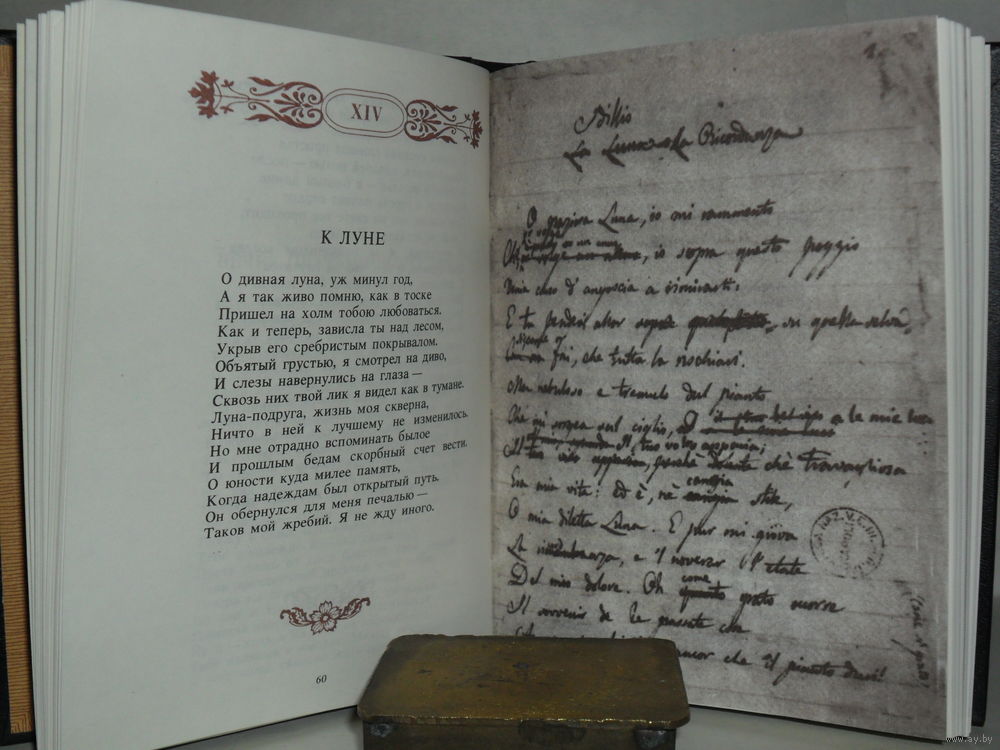 XIV
К ЛУНЕ
О дивная луна, уж минул год,
А я так живо помню, как в тоске
Пришел на холм тобою любоваться.
Как и теперь, зависла ты над лесом,
Укрыв его сребристым покрывалом.
Объятый грустью, я смотрел на диво,
И слезы навернулись на глаза —
Сквозь них твой лик я видел как в тумане.
Луна-подруга, жизнь моя скверна,
Ничто в ней к лучшему не изменилось.
Но мне отрадно вспоминать былое
И прошлым бедам скорбный счет вести.
О юности куда милее память,
Когда надеждам был открытый путь.
Он обернулся для меня печалью —
Таков мой жребий. Я не жду иного.
60
Idillio
La Luna o la Ricordanza
O graziosa Luna, io mi rammento
io sopra questo poggio
d'angoscia a rimirarti.
E tu pendevi allor sopra quella selva,
fai, che tutta la rischiari.
Ma nebuloso e tremulo dal pianto
Che mi sorgea sul ciglio, a le mie luci
Il tuo volto apparia;
chè travagliosa
Era mia vita: ed è, nè cangia stile,
O mia diletta Luna. E pur mi giova
La ricordanza, e 'l noverar l'etate
Del mio dolore. Oh come grato occorre
Il sovvenir de le passate cose
ancor che il pianto duri!
www.ay.by